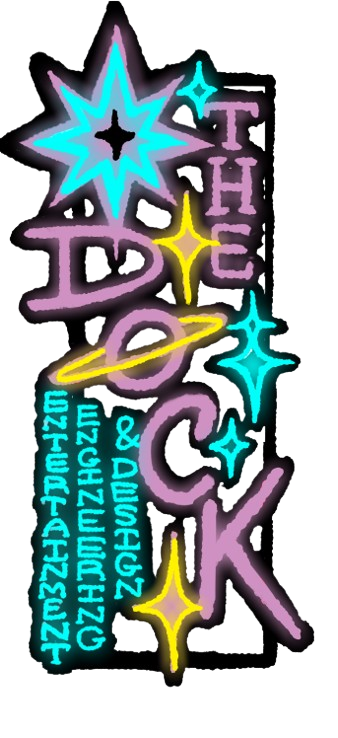 THE
DOCK
ENTERTAINMENT
ENGINEERING
& DESIGN